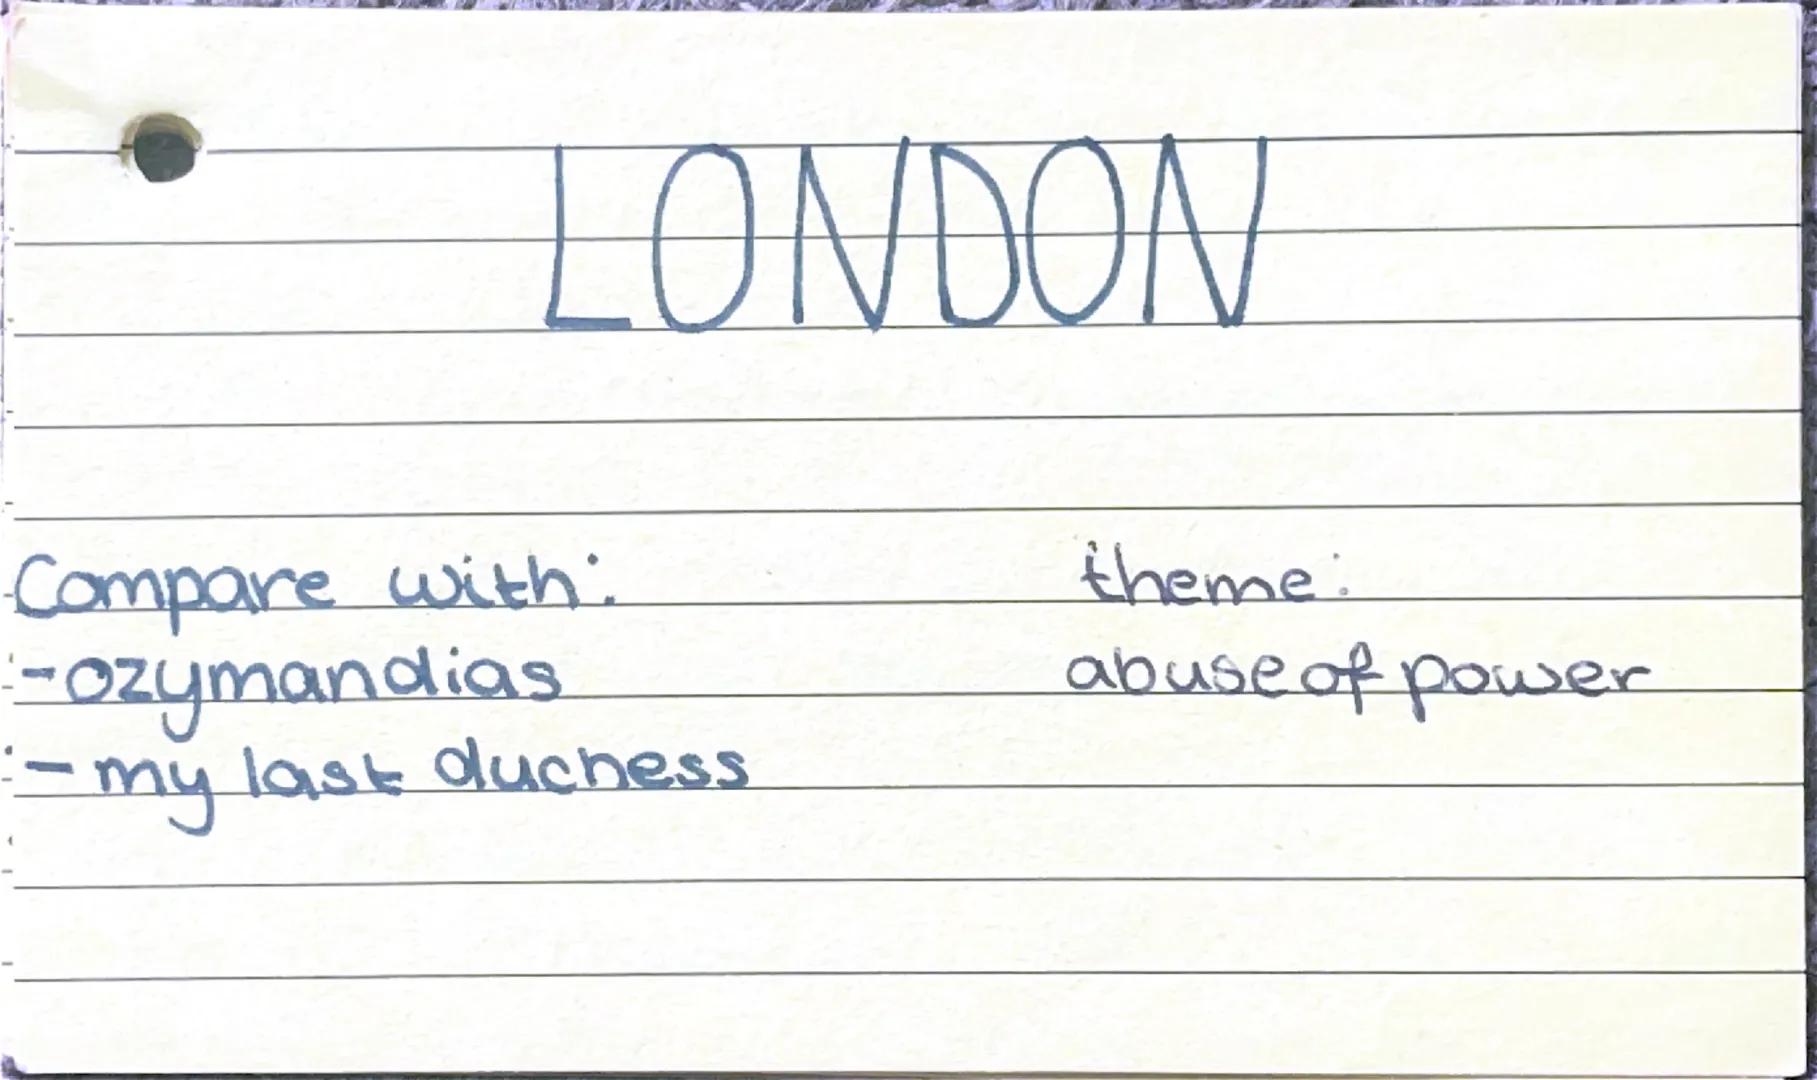 LONDON
Compare with:
theme:
-ozymandias
abuse of power
- my last duchess